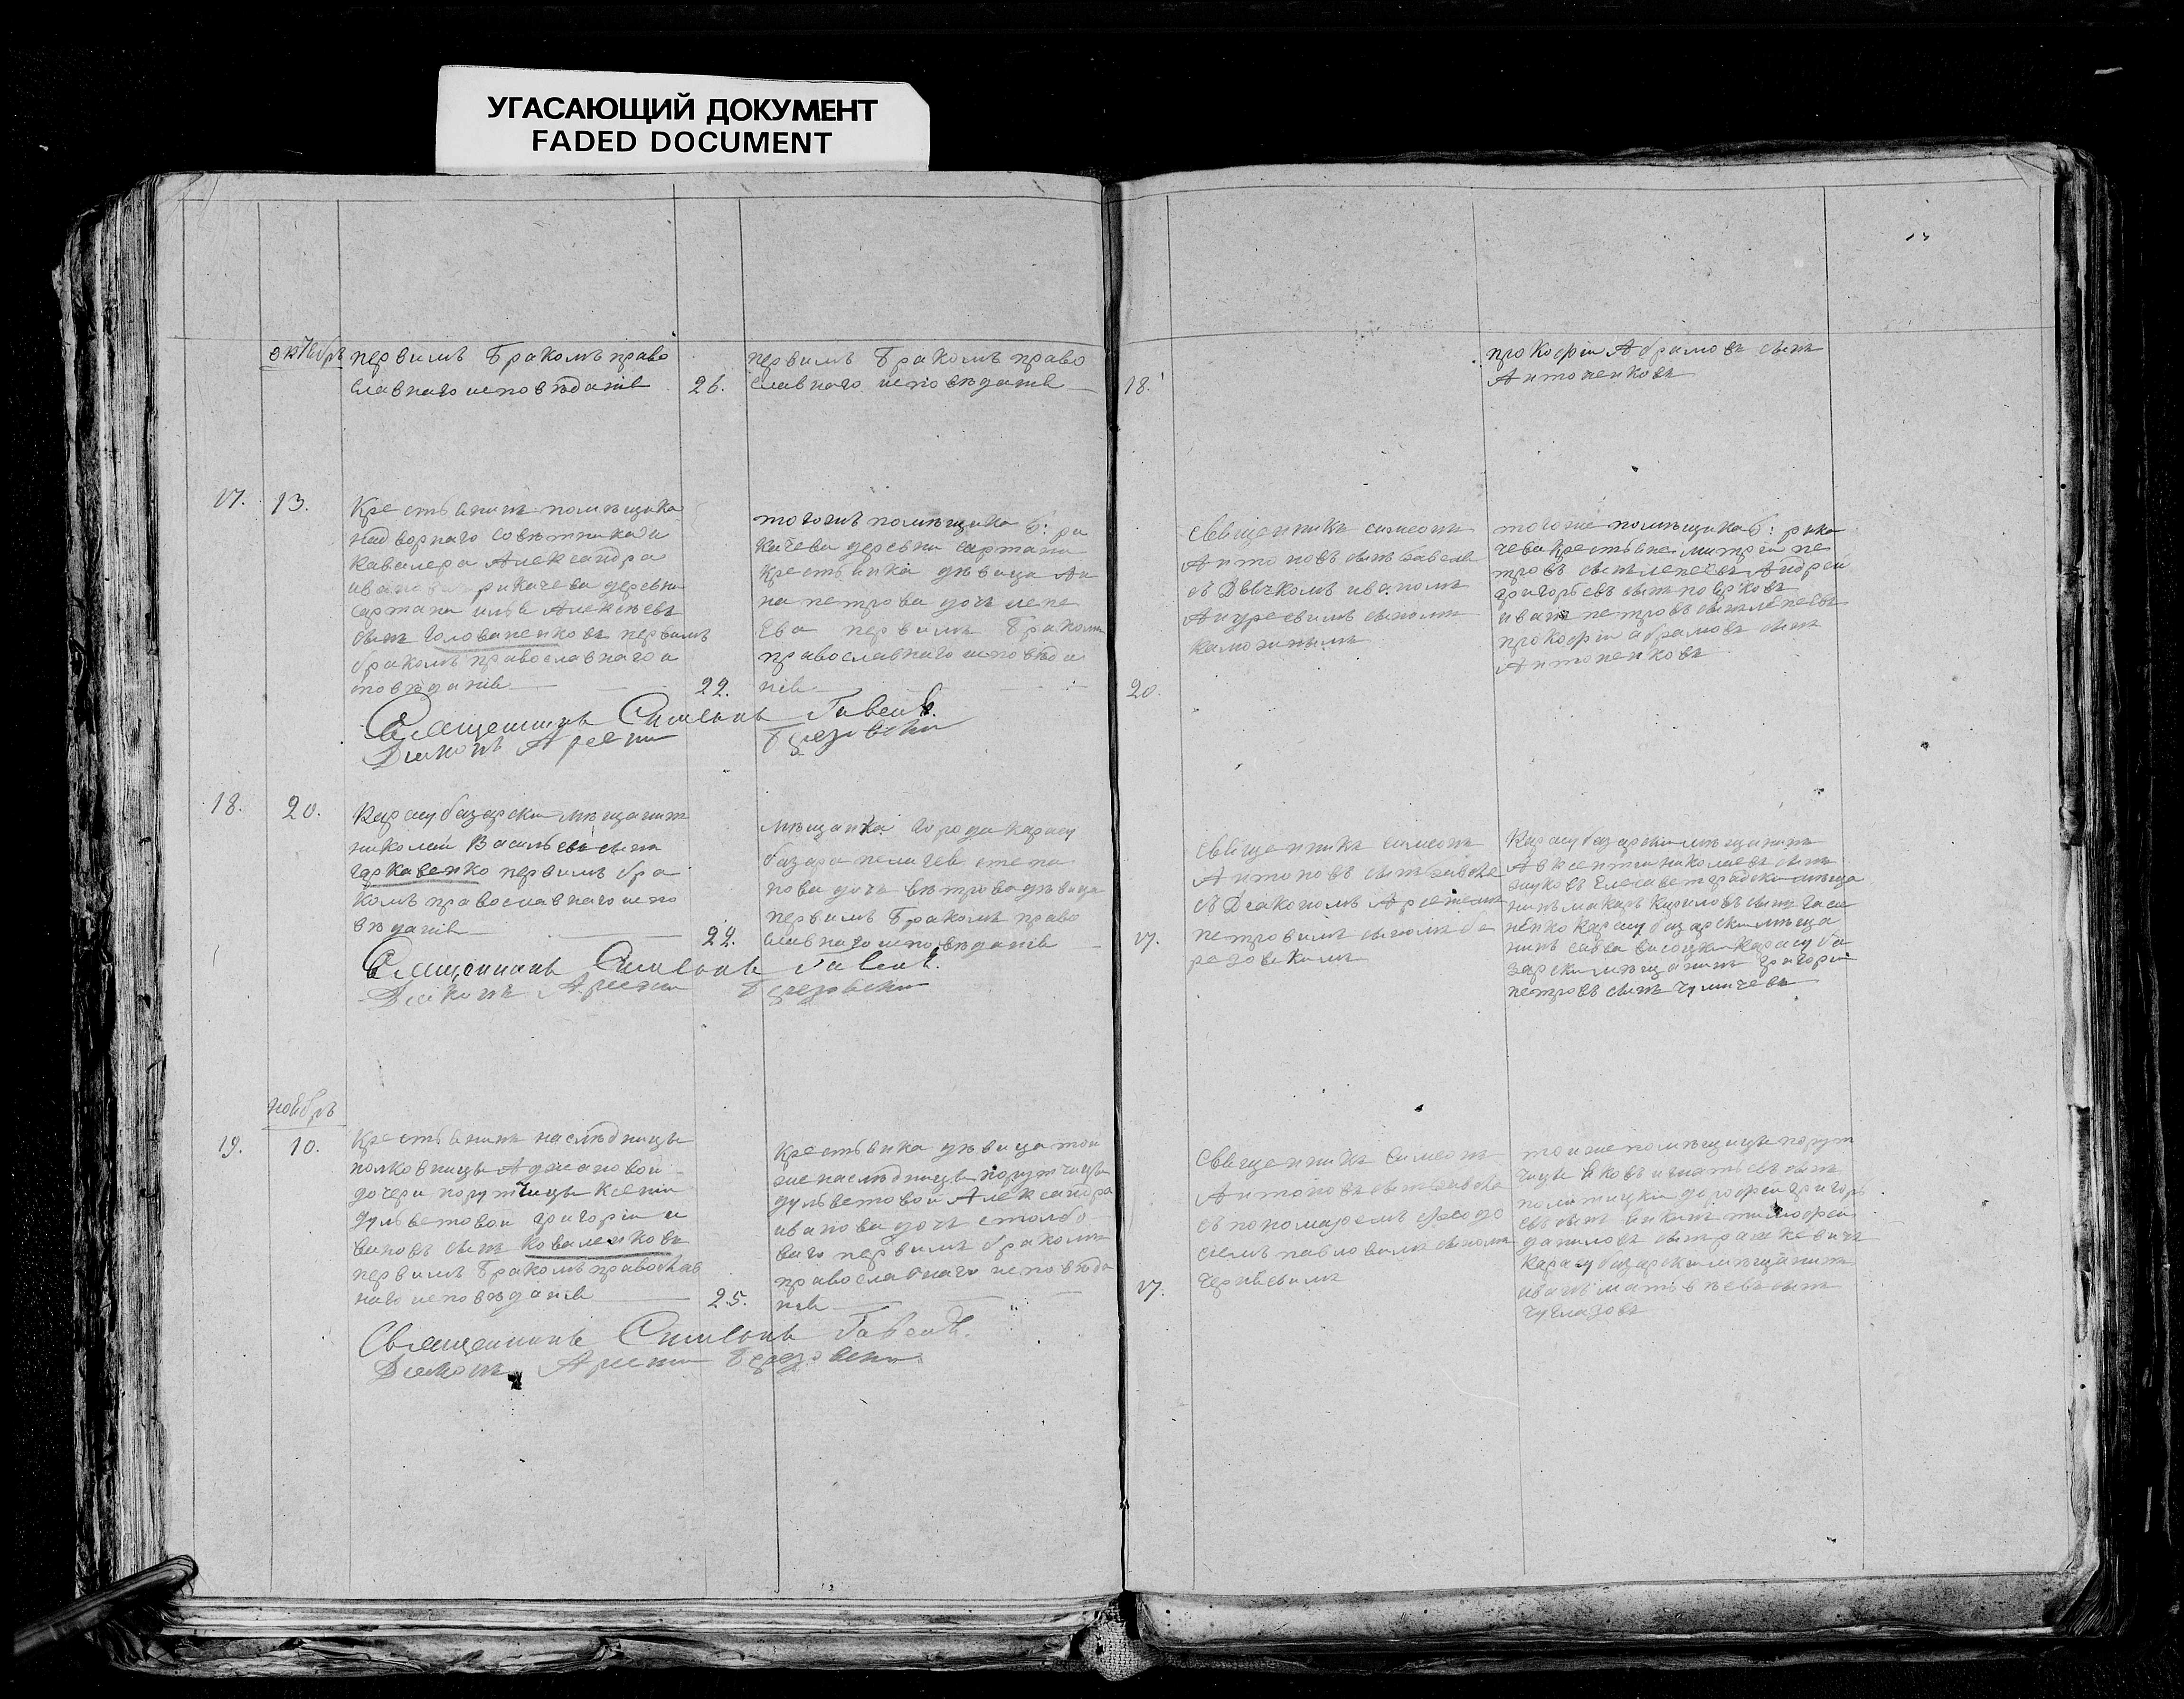 УГАСАЮЩИЙ ДОКУМЕНТ
FADED DOCUMENT
октябрь
первимъ бракомъ право
славнаго исповѣданія
26.
первимъ бракомъ право
славнаго исповѣданія
18.
прокофій Абрамовъ синъ
Антоненковъ
17.
13.
Крестьянинъ помѣщика
надворнаго совѣтника и
кавалера Александра
рикачева деревни
сартани илья Алексѣевъ
синъ Голованенковъ первимъ
бракомъ православнаго и
сповѣданія
22.
тогожъ помѣщика б: ри
качева деревни сартани
крестьянка дѣвица Ан
на петрова дочь лепе
ева первимъ бракомъ
православнаго исповѣда
нія
20.
священникъ симеонъ
Антоновъ синъ
съ Дьячкомъ иваномъ
Андреевимъ синомъ
тогоже помѣщика б: рика
чева крестьяне митрій пе
тровъ синъ лепеевъ Андрей
григорьевъ синъ
иванъ петровъ синъ лепеевъ
прокофій абрамовъ синъ
Антоненковъ
Священникъ Симеонъ
Диаконъ Арсеній Березовскій
18.
20.
Карасубазарскій мѣщанинъ
николай Васильевъ синъ
гаркавенко первимъ бра
комъ православнаго испо
вѣданія
22.
мѣщанка города карасу
базара пелагея степа
нова дочь вѣтрова дѣвица
первимъ бракомъ право
славнаго исповѣданія
17.
священникъ симеонъ
Антоновъ синъ
съ Діакономъ Арсеніемъ
петровимъ синомъ бе
резовскимъ
Карасубазарскій мѣщанинъ
Авксентій николаевъ синъ
елисаветградскій мѣща
нинъ макаръ кириловъ синъ
карасубазарскій мѣща
нинъ савва висоцкій карасуба
зарскій мѣщанинъ григорій
петровъ синъ чумичевъ
Священникъ Симеонъ
Диаконъ Арсеній Березовскій
ноябрь
19.
10.
Крестьянинъ наслѣдницы
полковницы Аджановой
дочери порутчицы Ксеніи
дульветовой григорій и
синъ Коваленковъ
первимъ бракомъ православ
наго исповѣданія
25.
крестьянка дѣвица той
же наслѣдницы порутчицы
дульветовой Александра
иванова дочь столбо
ваго первимъ бракомъ
православнаго исповѣда
нія
17.
священникъ симеонъ
Антоновъ синъ
съ пономаремъ феодо
сіемъ павловимъ синомъ
тойже помѣщицы порут
чицы яковъ игнатьевъ синъ
дорофей григорь
евъ синъ тимофей
даниловъ синъ
карасубазарскій мѣщанинъ
иванъ матвѣевъ синъ
чуглазовъ
Священникъ Симеонъ
Диаконъ Арсеній Березовскій